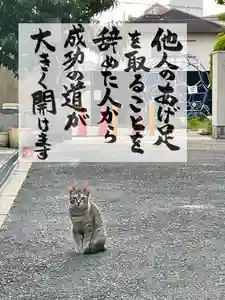 他人のあげ足
を取ることを
辞めた人から
成功の道が
大きく開けます